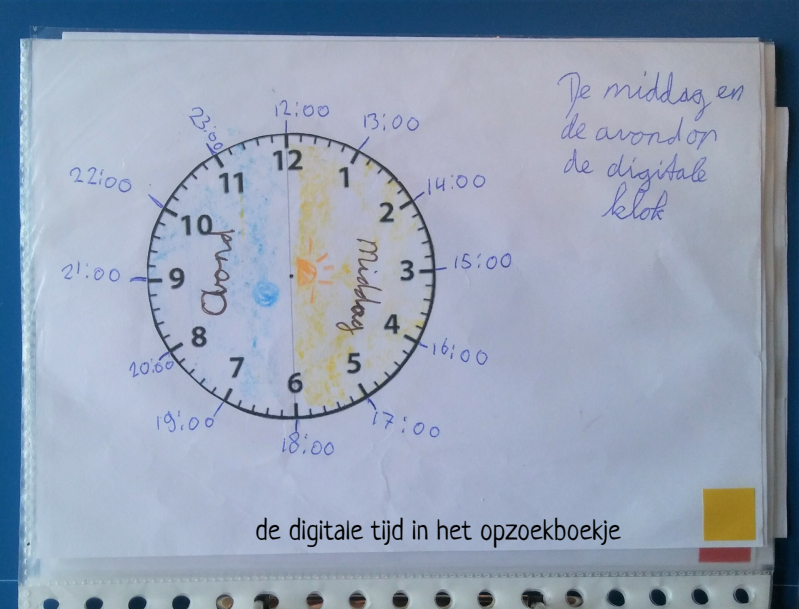 De middag en
de avond op
de digitale
klok
12:00
13:00
14:00
15:00
16:00
17:00
18:00
19:00
20:00
21:00
22:00
23:00
12
1
2
3
4
5
6
7
8
9
10
11
middag
avond
de digitale tijd in het opzoekboekje